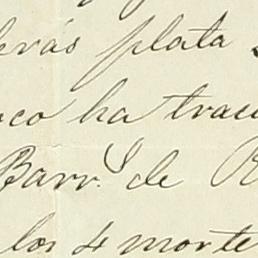 erás plata
co ha trac
Barr. de R
los 4 morte